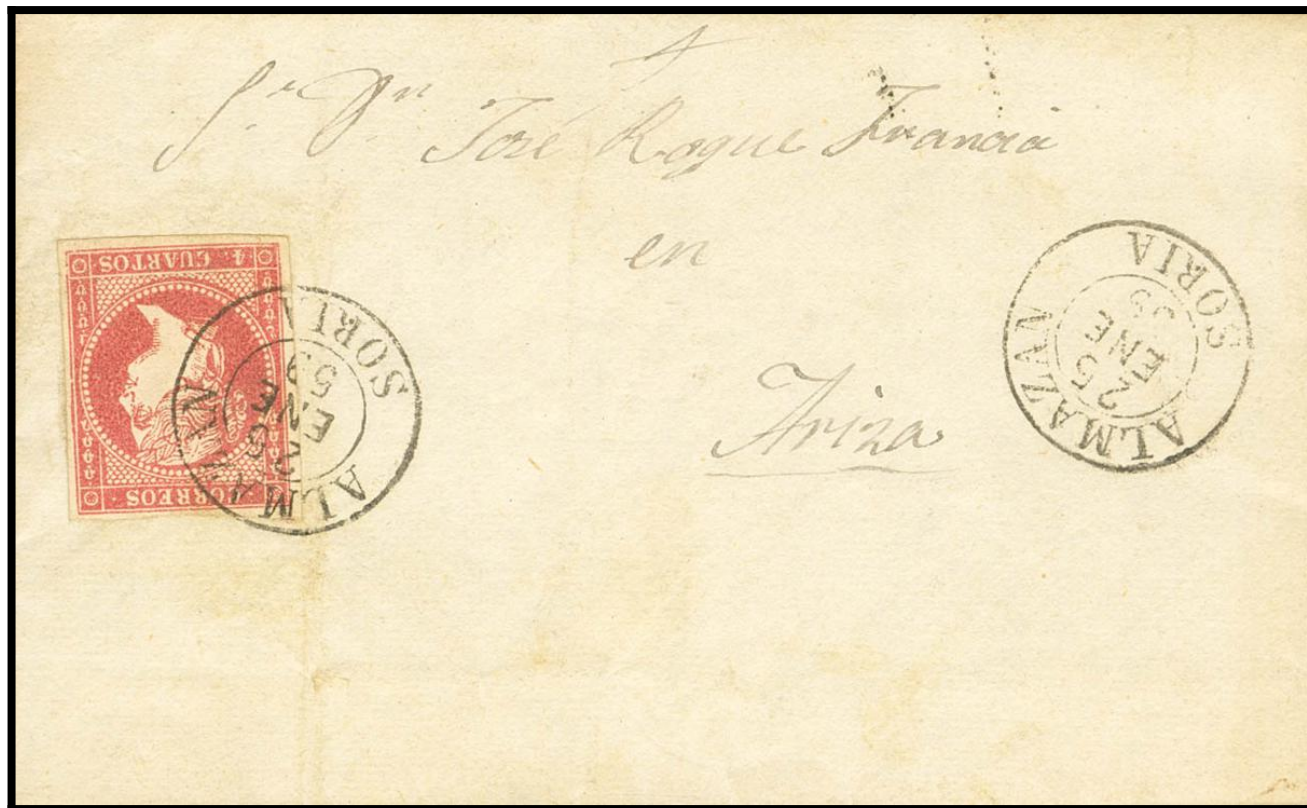 Sr. Dn. José Roque Francia
en
Ariza
4 CUARTOS
CORREOS
ALMAZAN
25
ENE
59
SORIA
ALMAZAN
25
ENE
59
SORIA